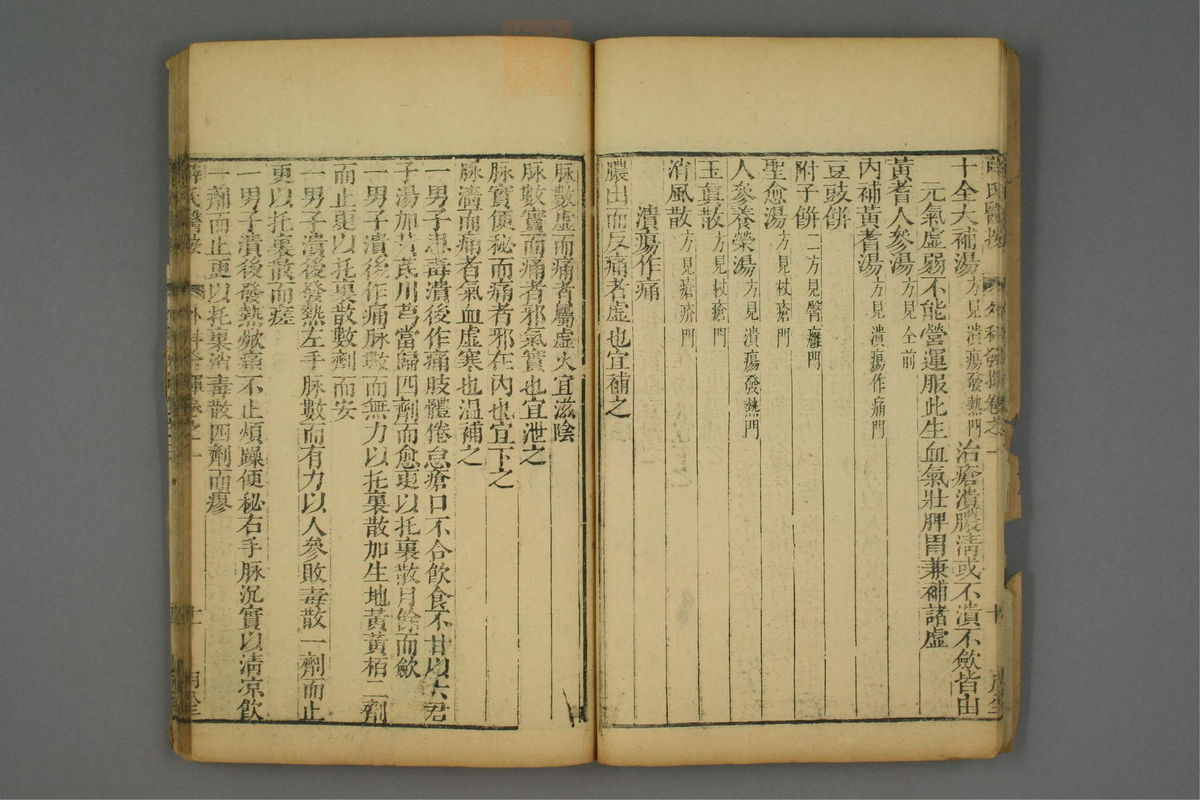 十全大補湯方見潰瘍發熱門治瘡潰膿清或不潰不斂皆由
元氣虛弱不能營運服此生血氣壯脾胃兼補諸虛
黃耆人參湯方見仝前
內補黃耆湯方見潰瘍作痛門
豆豉餅
附子餅二方見臀癰門
聖愈湯方見杖瘡門
人參養榮湯方見潰瘍發熱門
玉真散方見杖瘡門
消風散方見瘡疥門
潰瘍作痛
膿出而反痛者虛也宜補之
脉數虛而痛者屬虛火宜滋陰
脉數實而痛者邪氣實也宜泄之
脉實便秘而痛者邪在內也宜下之
脉濇而痛者氣血虛寒也溫補之
一男子患毒潰後作痛肢體倦怠瘡口不合飲食不甘以六君
子湯加黃芪川芎當歸四劑而愈更以托裏散月餘而斂
一男子潰後作痛脉數而無力以托裏散加生地黃黃栢二劑
而止更以托裏散數劑而安
一男子潰後發熱左手脉數而有力以人參敗毒散一劑而止
更以托裏散而瘥
一男子潰後發熱嫩痛不止煩躁便秘右手脉沉實以清凉飲
一劑而止更以托裏消毒散四劑而瘳
薛氏醫按 外科發揮卷之一